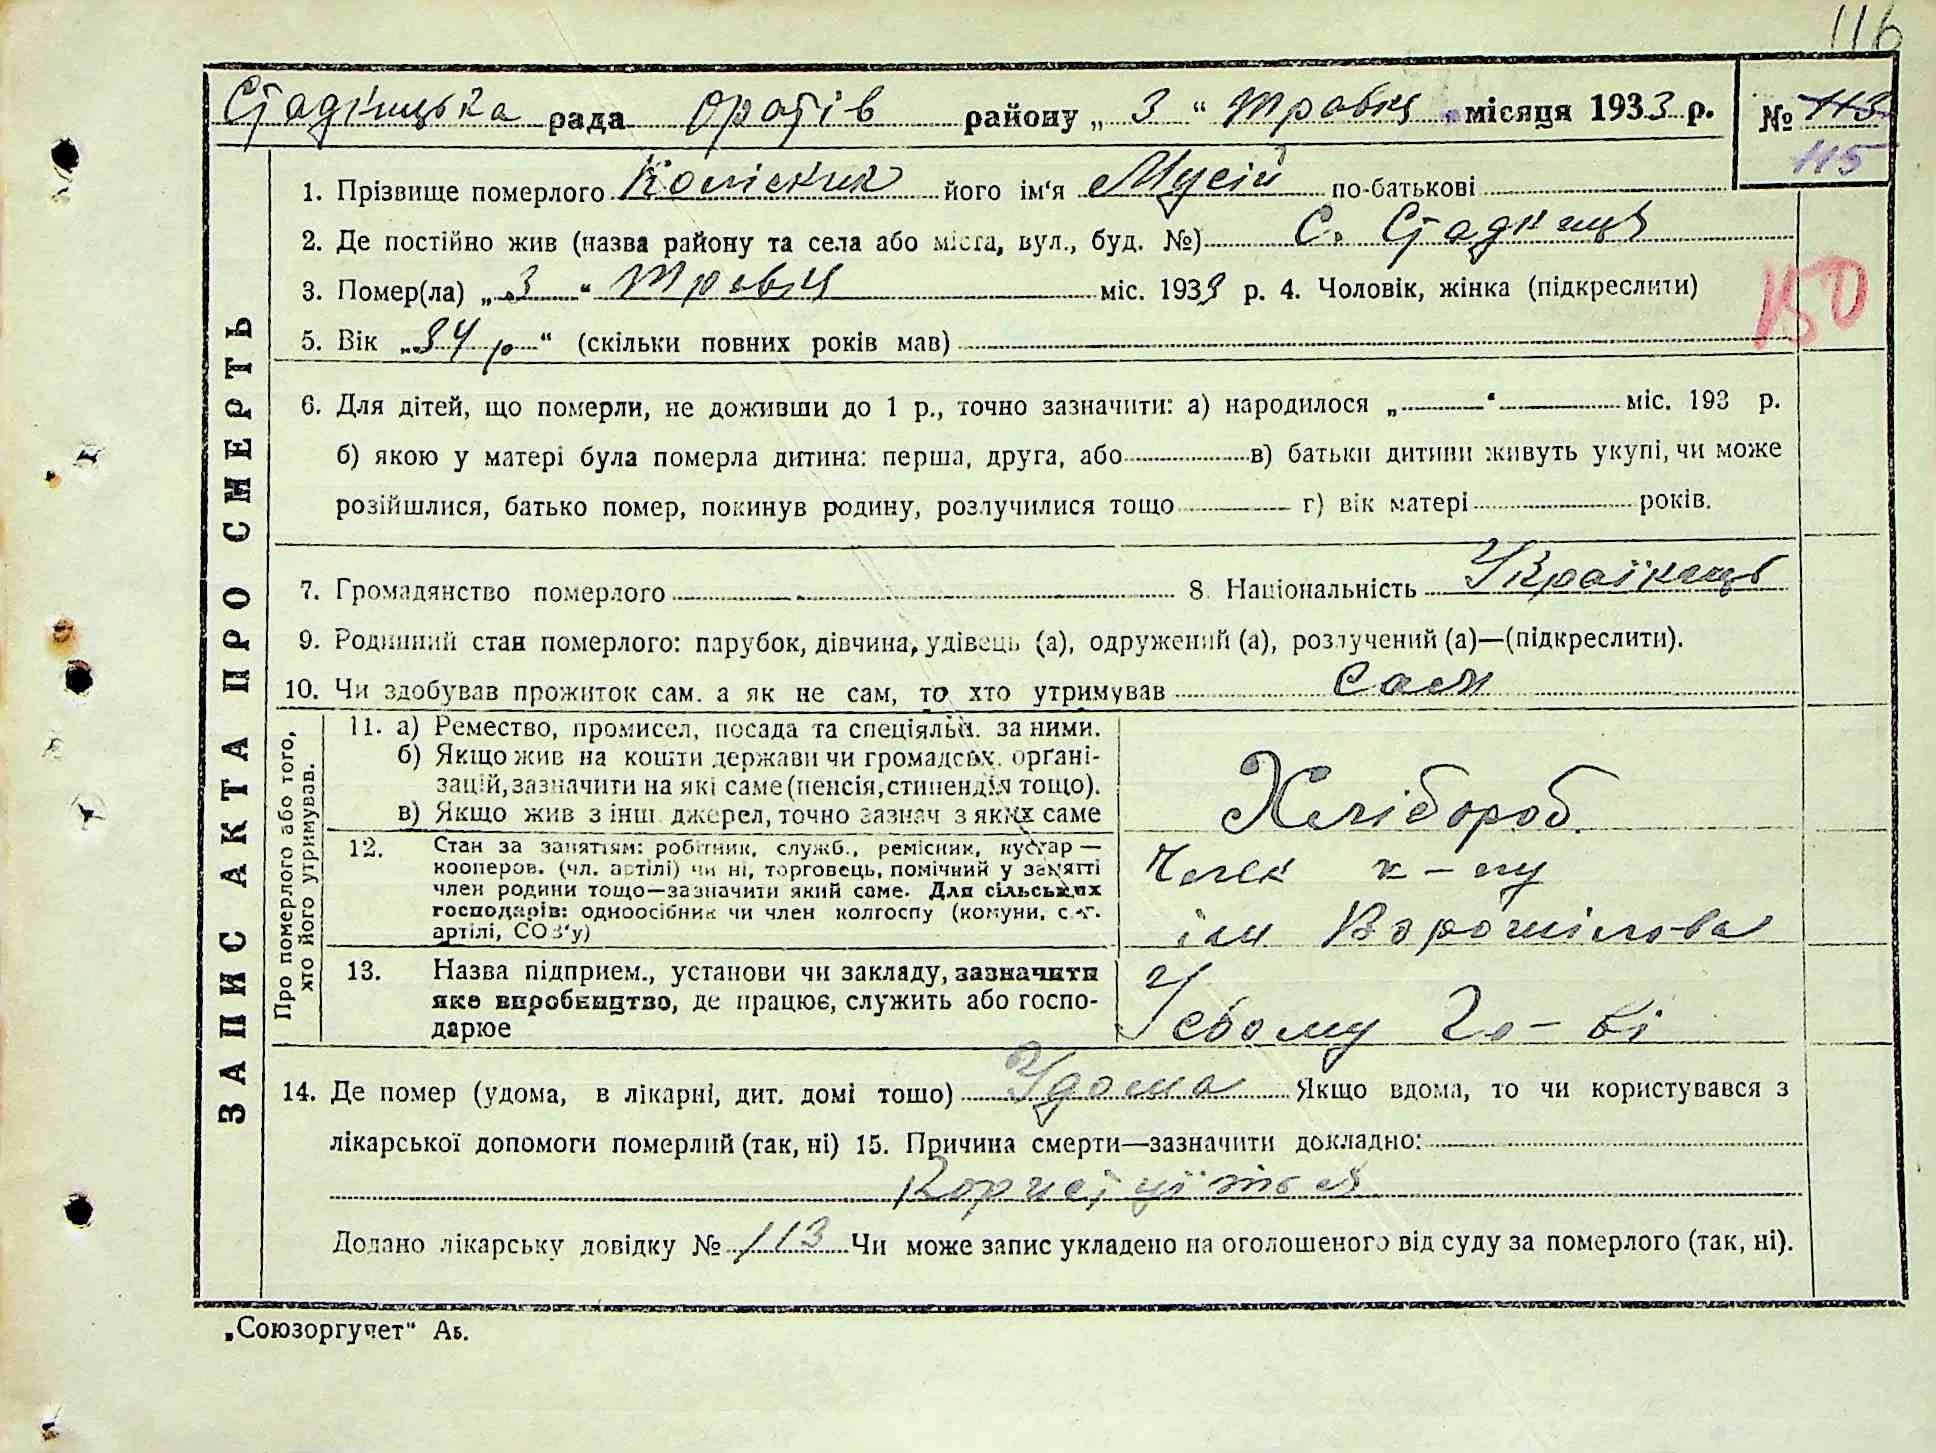 116
Стадницька рада Оратів району „ 3 “ Травня місяця 1933 р. № 113
115
1. Прізвище померлого Колісник його ім‘я Мусій по-батькові
2. Де постійно жив (назва району та села або міста, вул., буд. №) С. Стадниця
3. Помер(ла) „ 3 “ Травня міс. 1933 р. 4. Чоловік, жінка (підкреслити)
150
5. Вік „34 р“ (скільки повних років мав)
6. Для дітей, що померли, не доживши до 1 р., точно зазначити: а) народилося „ “ міс. 193 р.
б) якою у матері була померла дитина: перша, друга, або в) батьки дитини живуть укупі, чи може
розійшлися, батько помер, покинув родину, розлучилися тощо г) вік матері років.
7. Громадянство померлого 8 Національність Українець
9. Родинний стан померлого: парубок, дівчина, удівець (а), одружений (а), розлучений (а)—(підкреслити).
10. Чи здобував прожиток сам. а як не сам, то хто утримував Сам
11. а) Ремество, промисел, посада та спеціяльн. за ними.
б) Якщо жив на кошти держави чи громадськ. органі-
зацій, зазначити на які саме (пенсія, стипендія тощо).
в) Якщо жив з інш. джерел, точно зазнач з яких саме
Хлібороб
12. Стан за заняттям: робітник, служб., ремісник, кустар —
кооперов. (чл. артілі) чи ні, торговець, помічний у занятті
член родини тощо—зазначити який саме. Для сільських
господарів: одноосібник чи член колгоспу (комуни, с.-г.
артілі, СОЗ‘у)
Член к-пу
ім Ворошілова
13. Назва підприєм., установи чи закладу, зазначити
яке виробництво, де працює, служить або госпо-
дарює
У свому го-ві
Про померлого або того,
хто його утримував.
ЗАПИС АКТА ПРО СМЕРТЬ
14. Де помер (удома, в лікарні, дит. домі тощо) Удома Якщо вдома, то чи користувався з
лікарської допомоги померлий (так, ні) 15. Причина смерти—зазначити докладно:
Додано лікарську довідку № 113 Чи може запис укладено на оголошеного від суду за померлого (так, ні).
„Союзоргучет“ Аь.